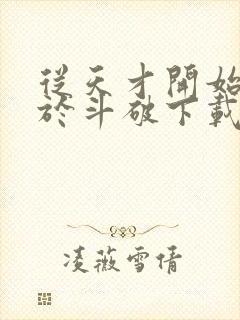 從天才開始
於斗破下載
凌薇雪倩